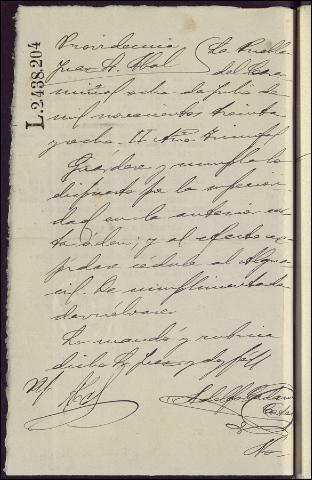 L.2438.204
Providencia
Juez Sr. Abal
La Puebla
del Cara
miñal ocho de Julio de
mil novecientos treinta
y ocho. II Año Triunfal
Guárdese y cúmplase lo
dispuesto por la superiori
dad en la anterior car
ta órden; y al efecto ex
pídase cédula al Algua
cil. De cumplimentada
devuélvase.
Lo mandó y rubrica
dicho Sr. Juez y doy fé//
Abal
Adolfo